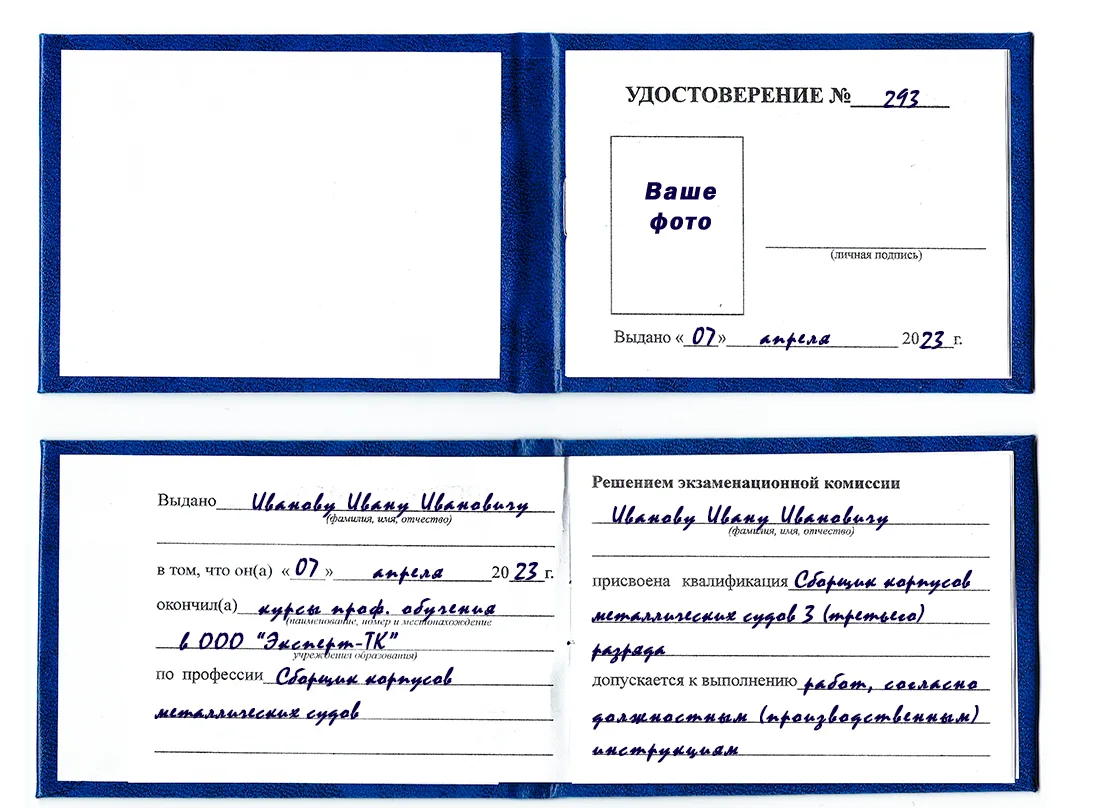 УДОСТОВЕРЕНИЕ № 293
Ваше
фото
(личная подпись)
Выдано «07» апреля 2023 г.
Выдано Иванову Ивану Ивановичу
(фамилия, имя, отчество)
в том, что он(а) «07» апреля 2023 г.
окончил(а) курсы проф. обучения
(наименование, номер и местонахождение
в ООО "Эксперт-ТК"
учреждения образования)
по профессии Сборщик корпусов
металлических судов
Решением экзаменационной комиссии
Иванову Ивану Ивановичу
(фамилия, имя, отчество)
присвоена квалификация Сборщик корпусов
металлических судов 3 (третьего)
разряда
допускается к выполнению работ, согласно
должностным (производственным)
инструкциям